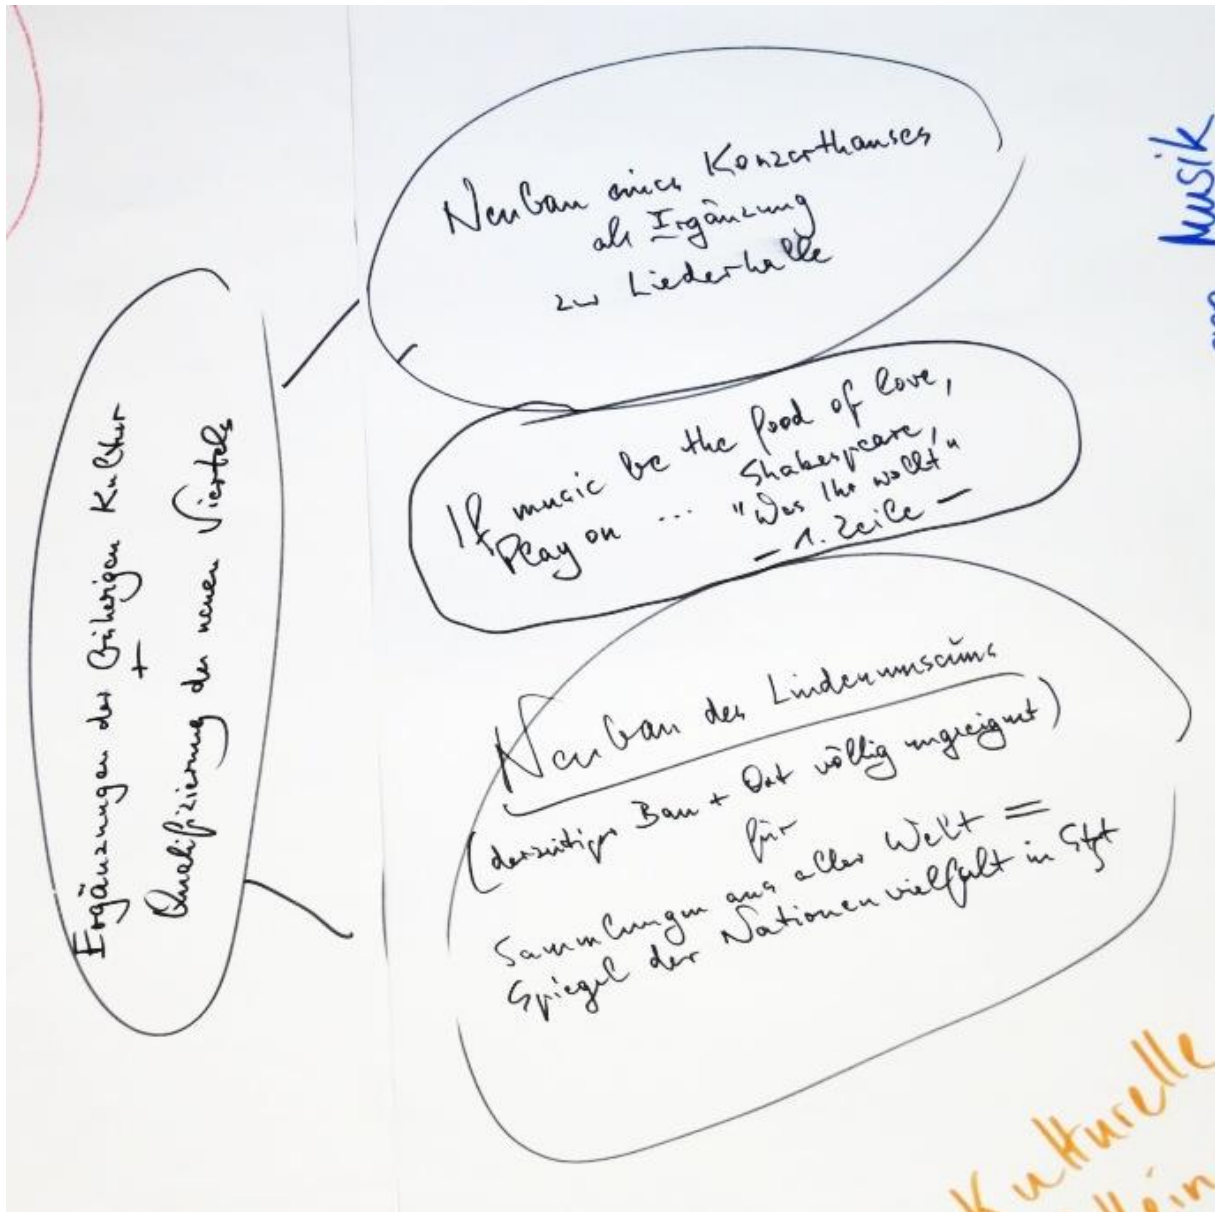 Ergänzungen der bisherigen Kultur
+
Qualifizierung des neuen Viertels
Neubau eines Konzerthauses
als Ergänzung
zur Liederhalle
If music be the food of love,
Play on ... Shakespeare,
"Was Ihr wollt"
- 1. Zeile -
Neubau des Lindenmuseums
(derzeitiger Bau + Ort völlig ungeeignet)
für
Sammlungen aus aller Welt =
Spiegel der Nationenvielfalt in Stgt
Musik
Kulturelle